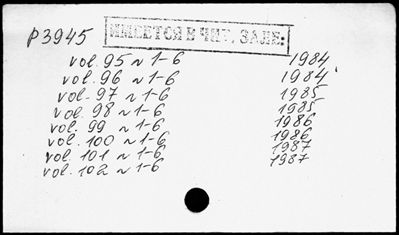 р3945
ИМЕЕТСЯ В ЧИТ. ЗАЛЕ:
vol. 95 N 1-6 1984
vol. 96 N 1-6 1984
vol. 97 N 1-6 1985
vol. 98 N 1-6 1985
vol. 99 N 1-6 1986
vol. 100 N 1-6 1986
vol. 101 N 1-6 1987
vol. 102 N 1-6 1987